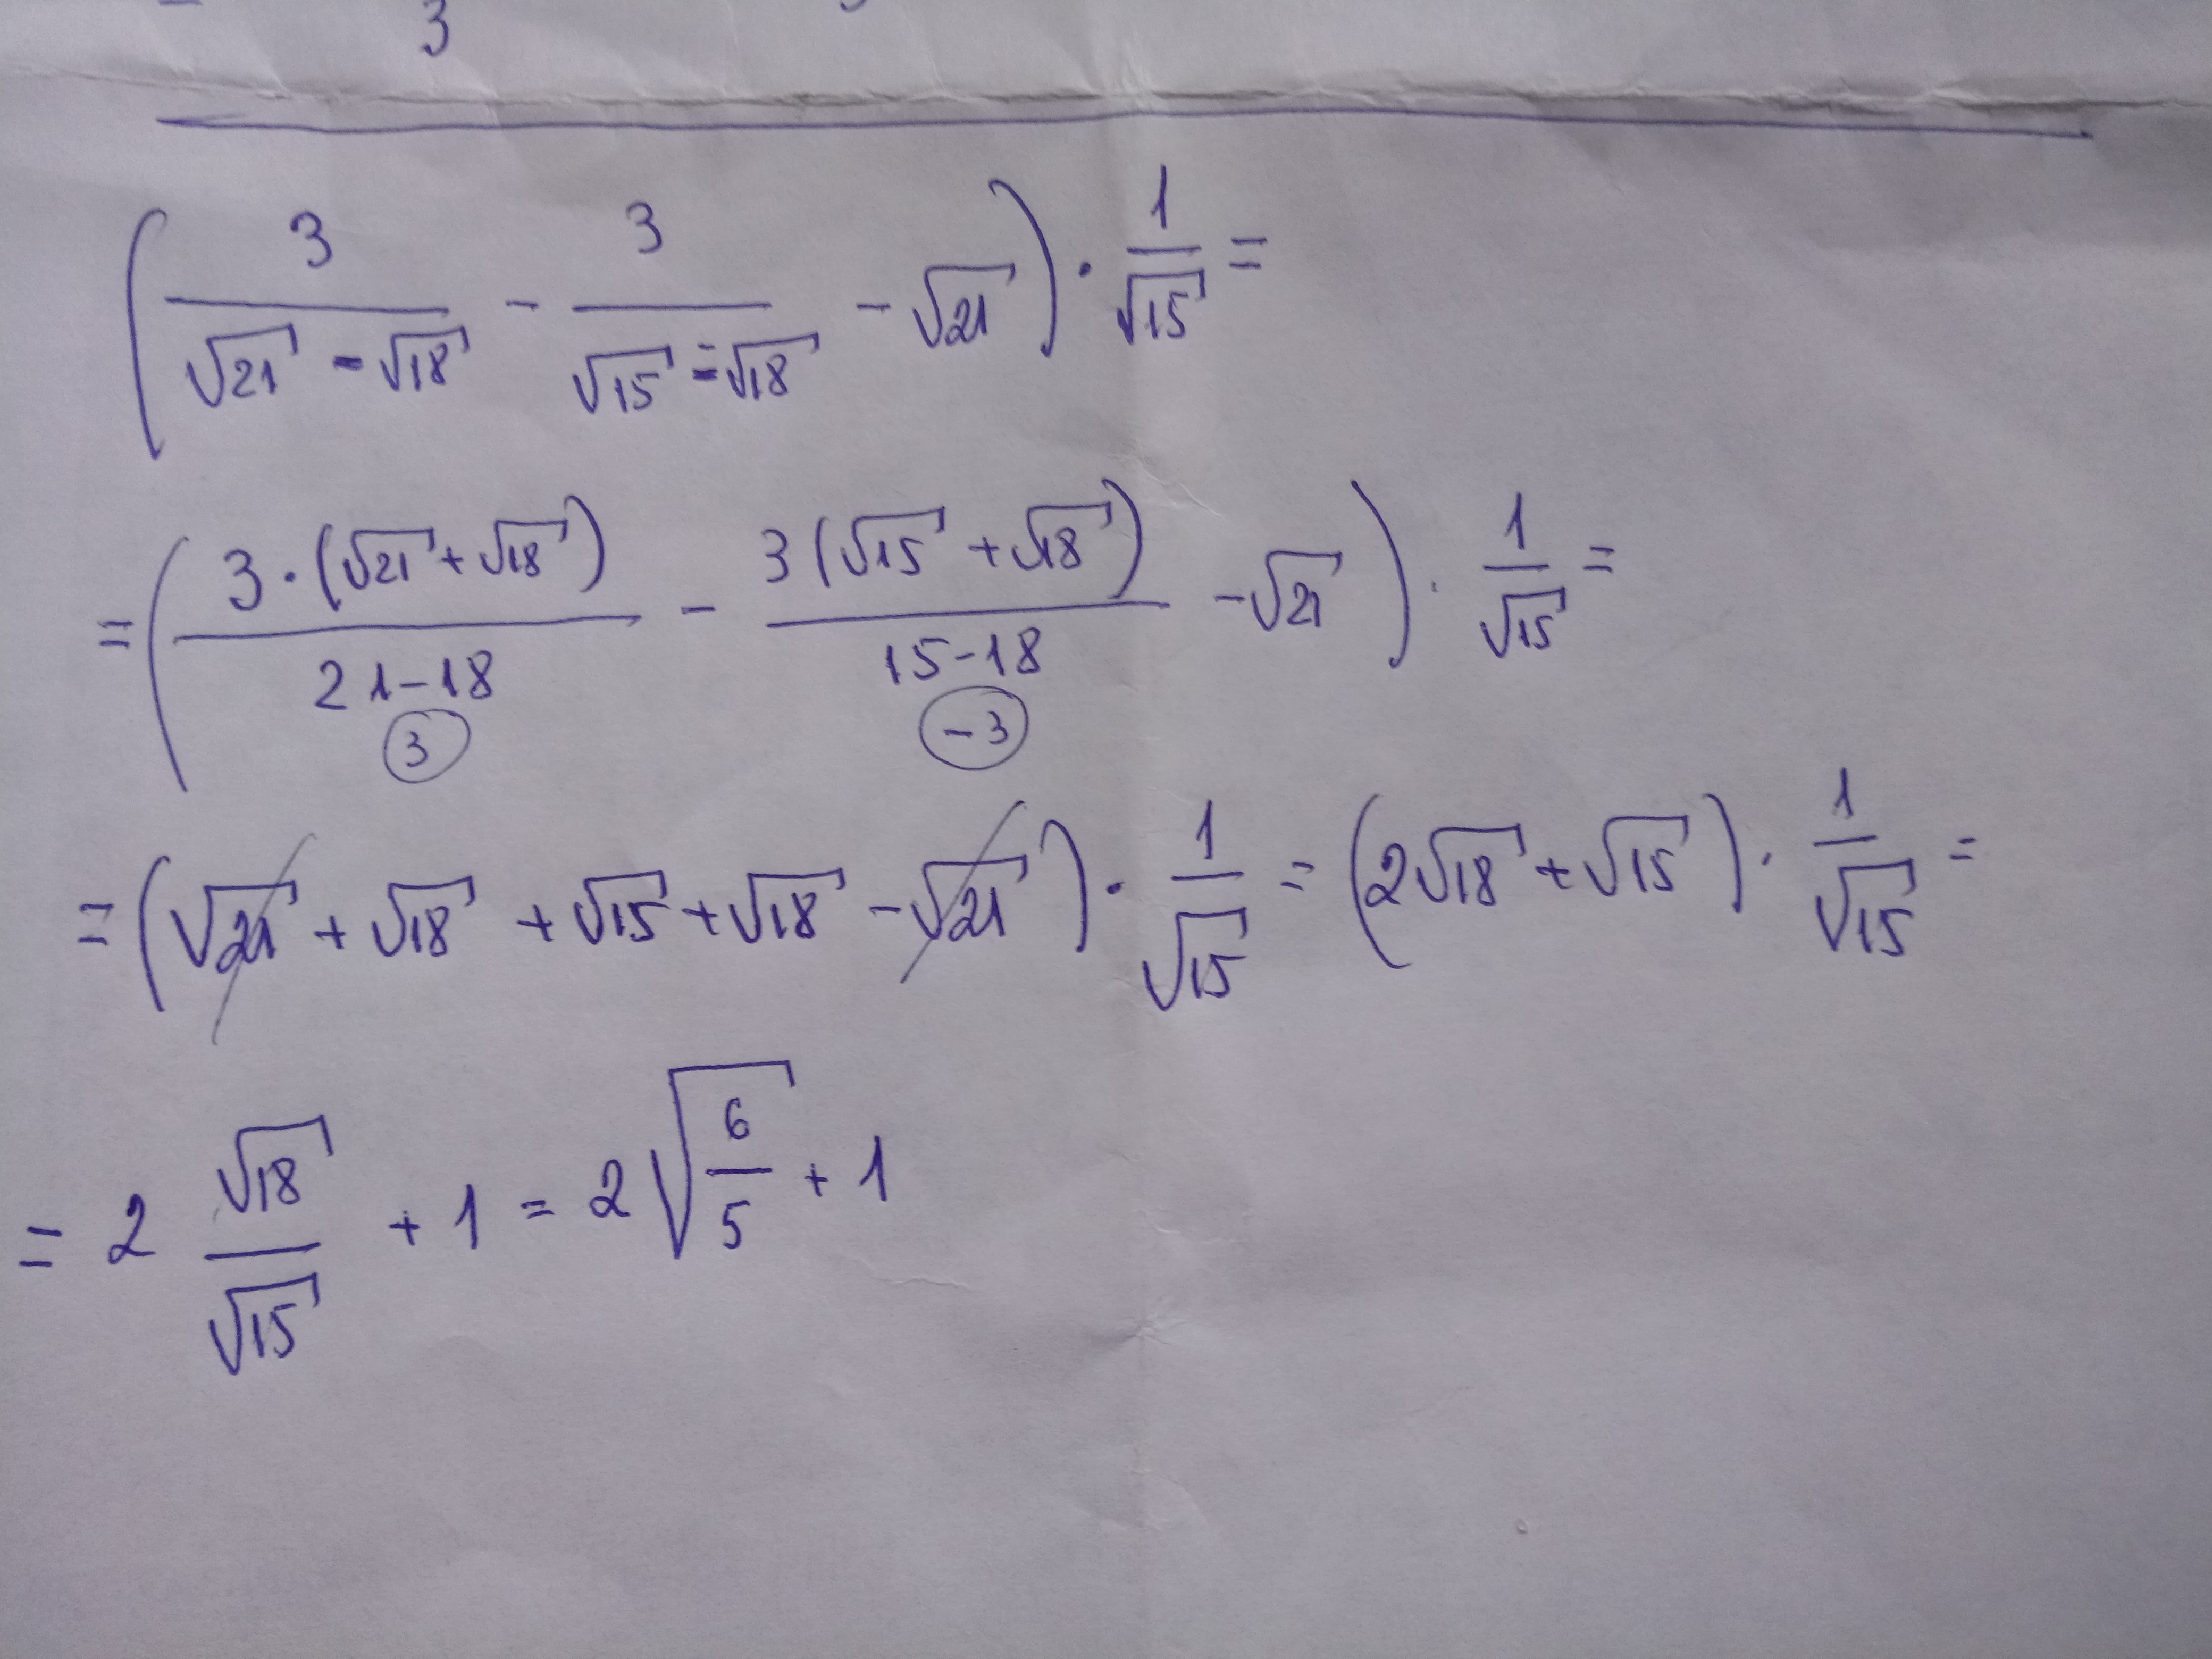 3
( 3/(√21 - √18) - 3/(√15 - √18) - √21 ) · 1/√15 =
= ( 3·(√21 + √18)/(21-18) - 3(√15 + √18)/(15-18) - √21 ) · 1/√15 =
(3) (-3)
= (√21 + √18 + √15 + √18 - √21) · 1/√15 = (2√18 + √15) · 1/√15 =
= 2 √18/√15 + 1 = 2√(6/5) + 1